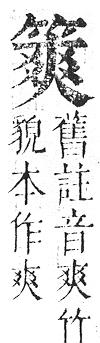 䉉
舊註音爽竹
貌本作爽